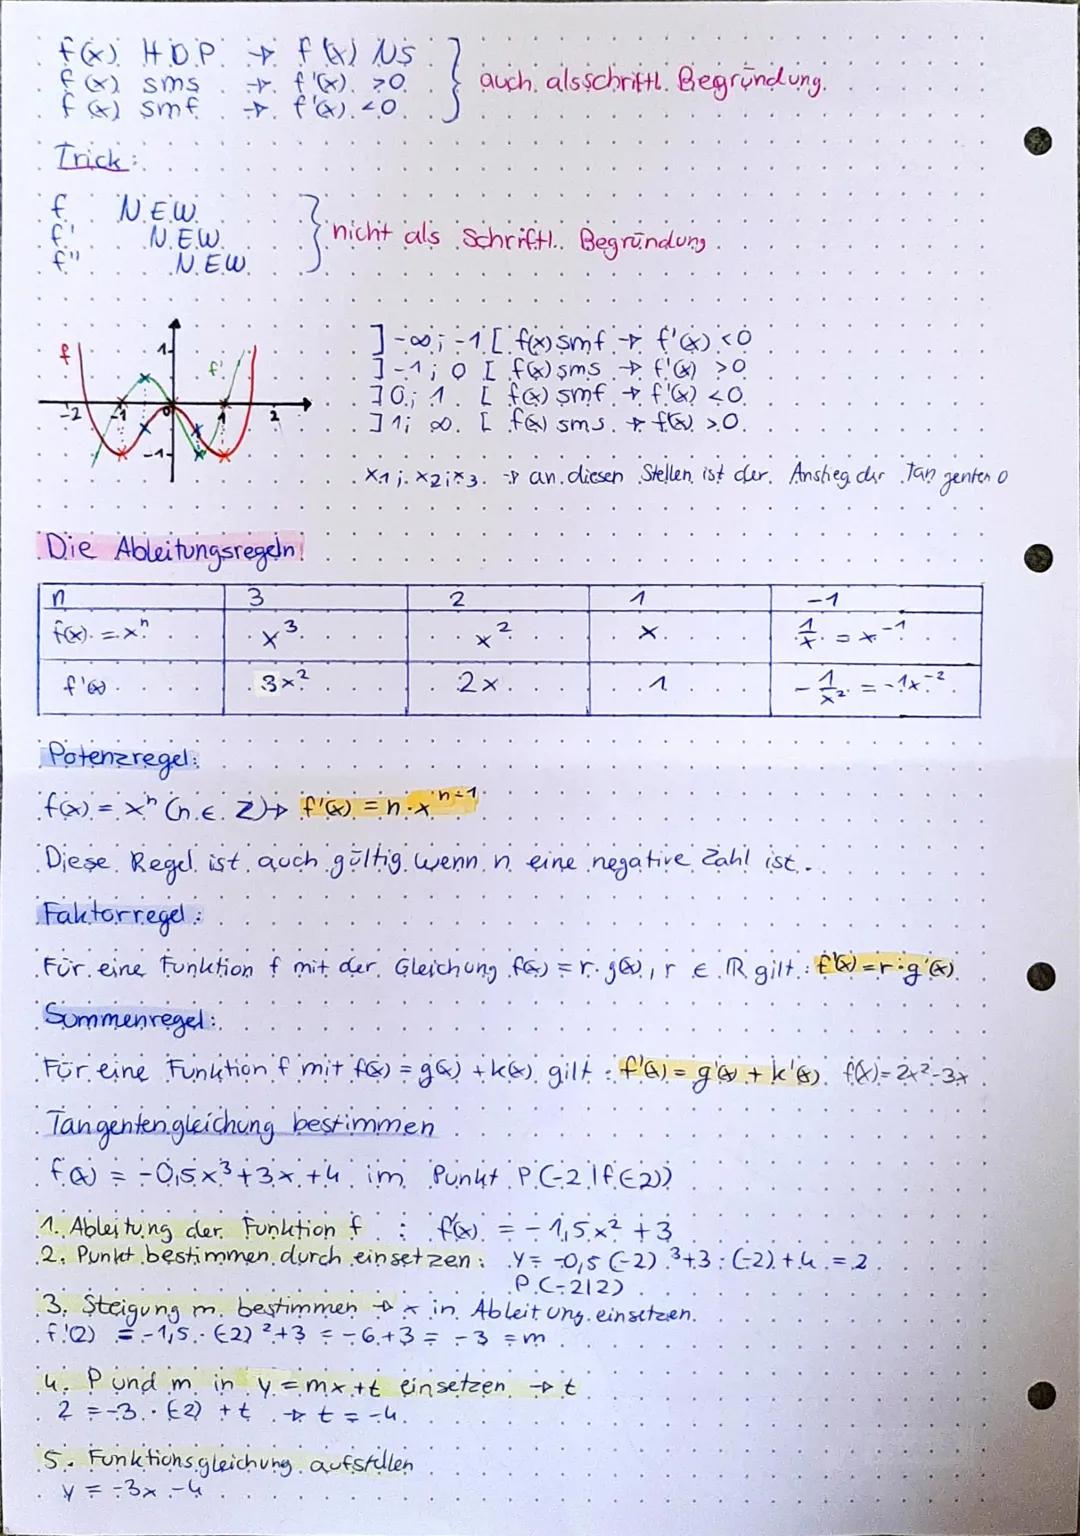 f(x) HOP → f'(x) NS
f(x) sms → f'(x) >0
f(x) smf → f'(x) <0
auch als schriftl. Begründung
Trick:
f N.E.W.
f' N.E.W.
f'' N.E.W.
nicht als Schriftl. Begründung
f
1
f'
-2 -1 0 1 2
-1
]-∞; -1 [ f(x) smf → f'(x) <0
]-1; 0 [ f(x) sms → f'(x) >0
]0; 1 [ f(x) smf → f'(x) <0
]1; ∞ [ f(x) sms → f(x) >0
x1; x2; x3 → an diesen Stellen ist der Anstieg der Tangenten 0
Die Ableitungsregeln:
n 3 2 1 -1
f(x) = xⁿ x³ x² x 1/x = x⁻¹
f'(x) 3x² 2x 1 -1/x² = -1x⁻²
Potenzregel:
f(x) = xⁿ (n ∈ Z) → f'(x) = n·xⁿ⁻¹
Diese Regel ist auch gültig wenn n eine negative Zahl ist.
Faktorregel:
Für eine Funktion f mit der Gleichung f(x) = r·g(x), r ∈ ℝ gilt: f'(x) = r·g'(x)
Summenregel:
Für eine Funktion f mit f(x) = g(x) + k(x) gilt: f'(x) = g'(x) + k'(x). f(x) = 2x²-3x
Tangentengleichung bestimmen
f(x) = -0,5x³+3x+4 im Punkt P(-2|f(-2))
1. Ableitung der Funktion f : f'(x) = -1,5x² +3
2. Punkt bestimmen durch einsetzen: y = -0,5 (-2)³+3·(-2)+4 = 2
P(-2|2)
3. Steigung m bestimmen → x in Ableitung einsetzen
f'(2) = -1,5·(-2)²+3 = -6+3 = -3 = m
4. P und m in y = mx+t einsetzen → t
2 = -3·(-2) + t → t = -4
5. Funktionsgleichung aufstellen
y = -3x -4